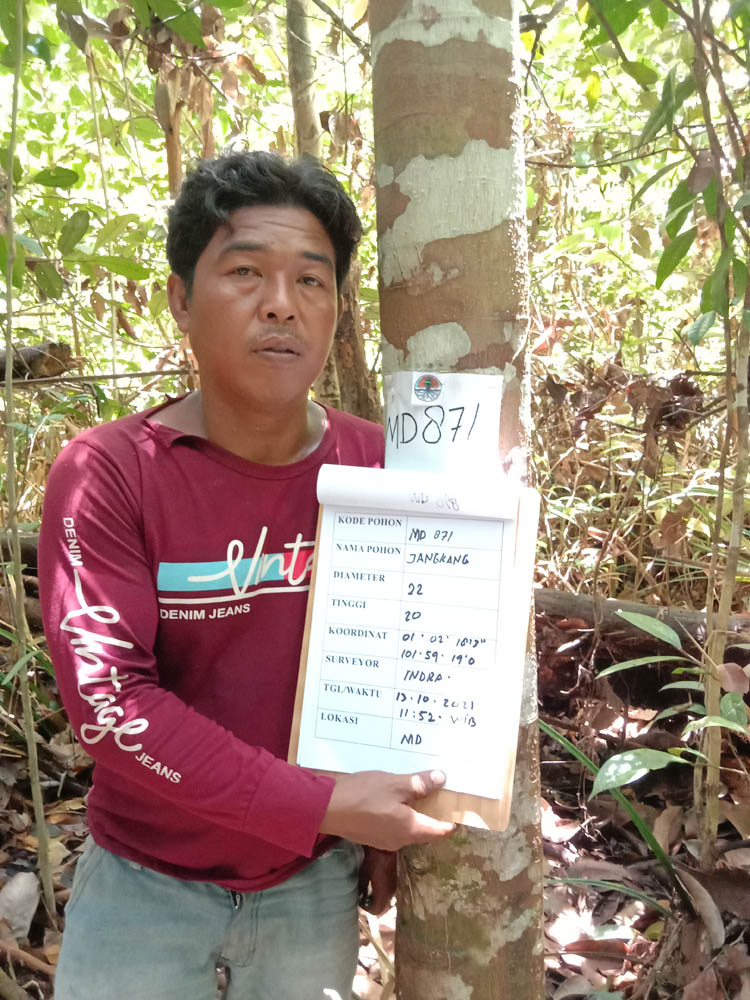 MD 871
KODE POHON MD 871
NAMA POHON JANGKANG
DIAMETER 22
TINGGI 20
KOORDINAT 01° 02' 18'3"
101·59·19'0
SURVEYOR INDRA.
TGL/WAKTU 13·10·2021
11:52· WIB
LOKASI MD
Vintage
DENIM JEANS
DENIM
Vintage
JEANS